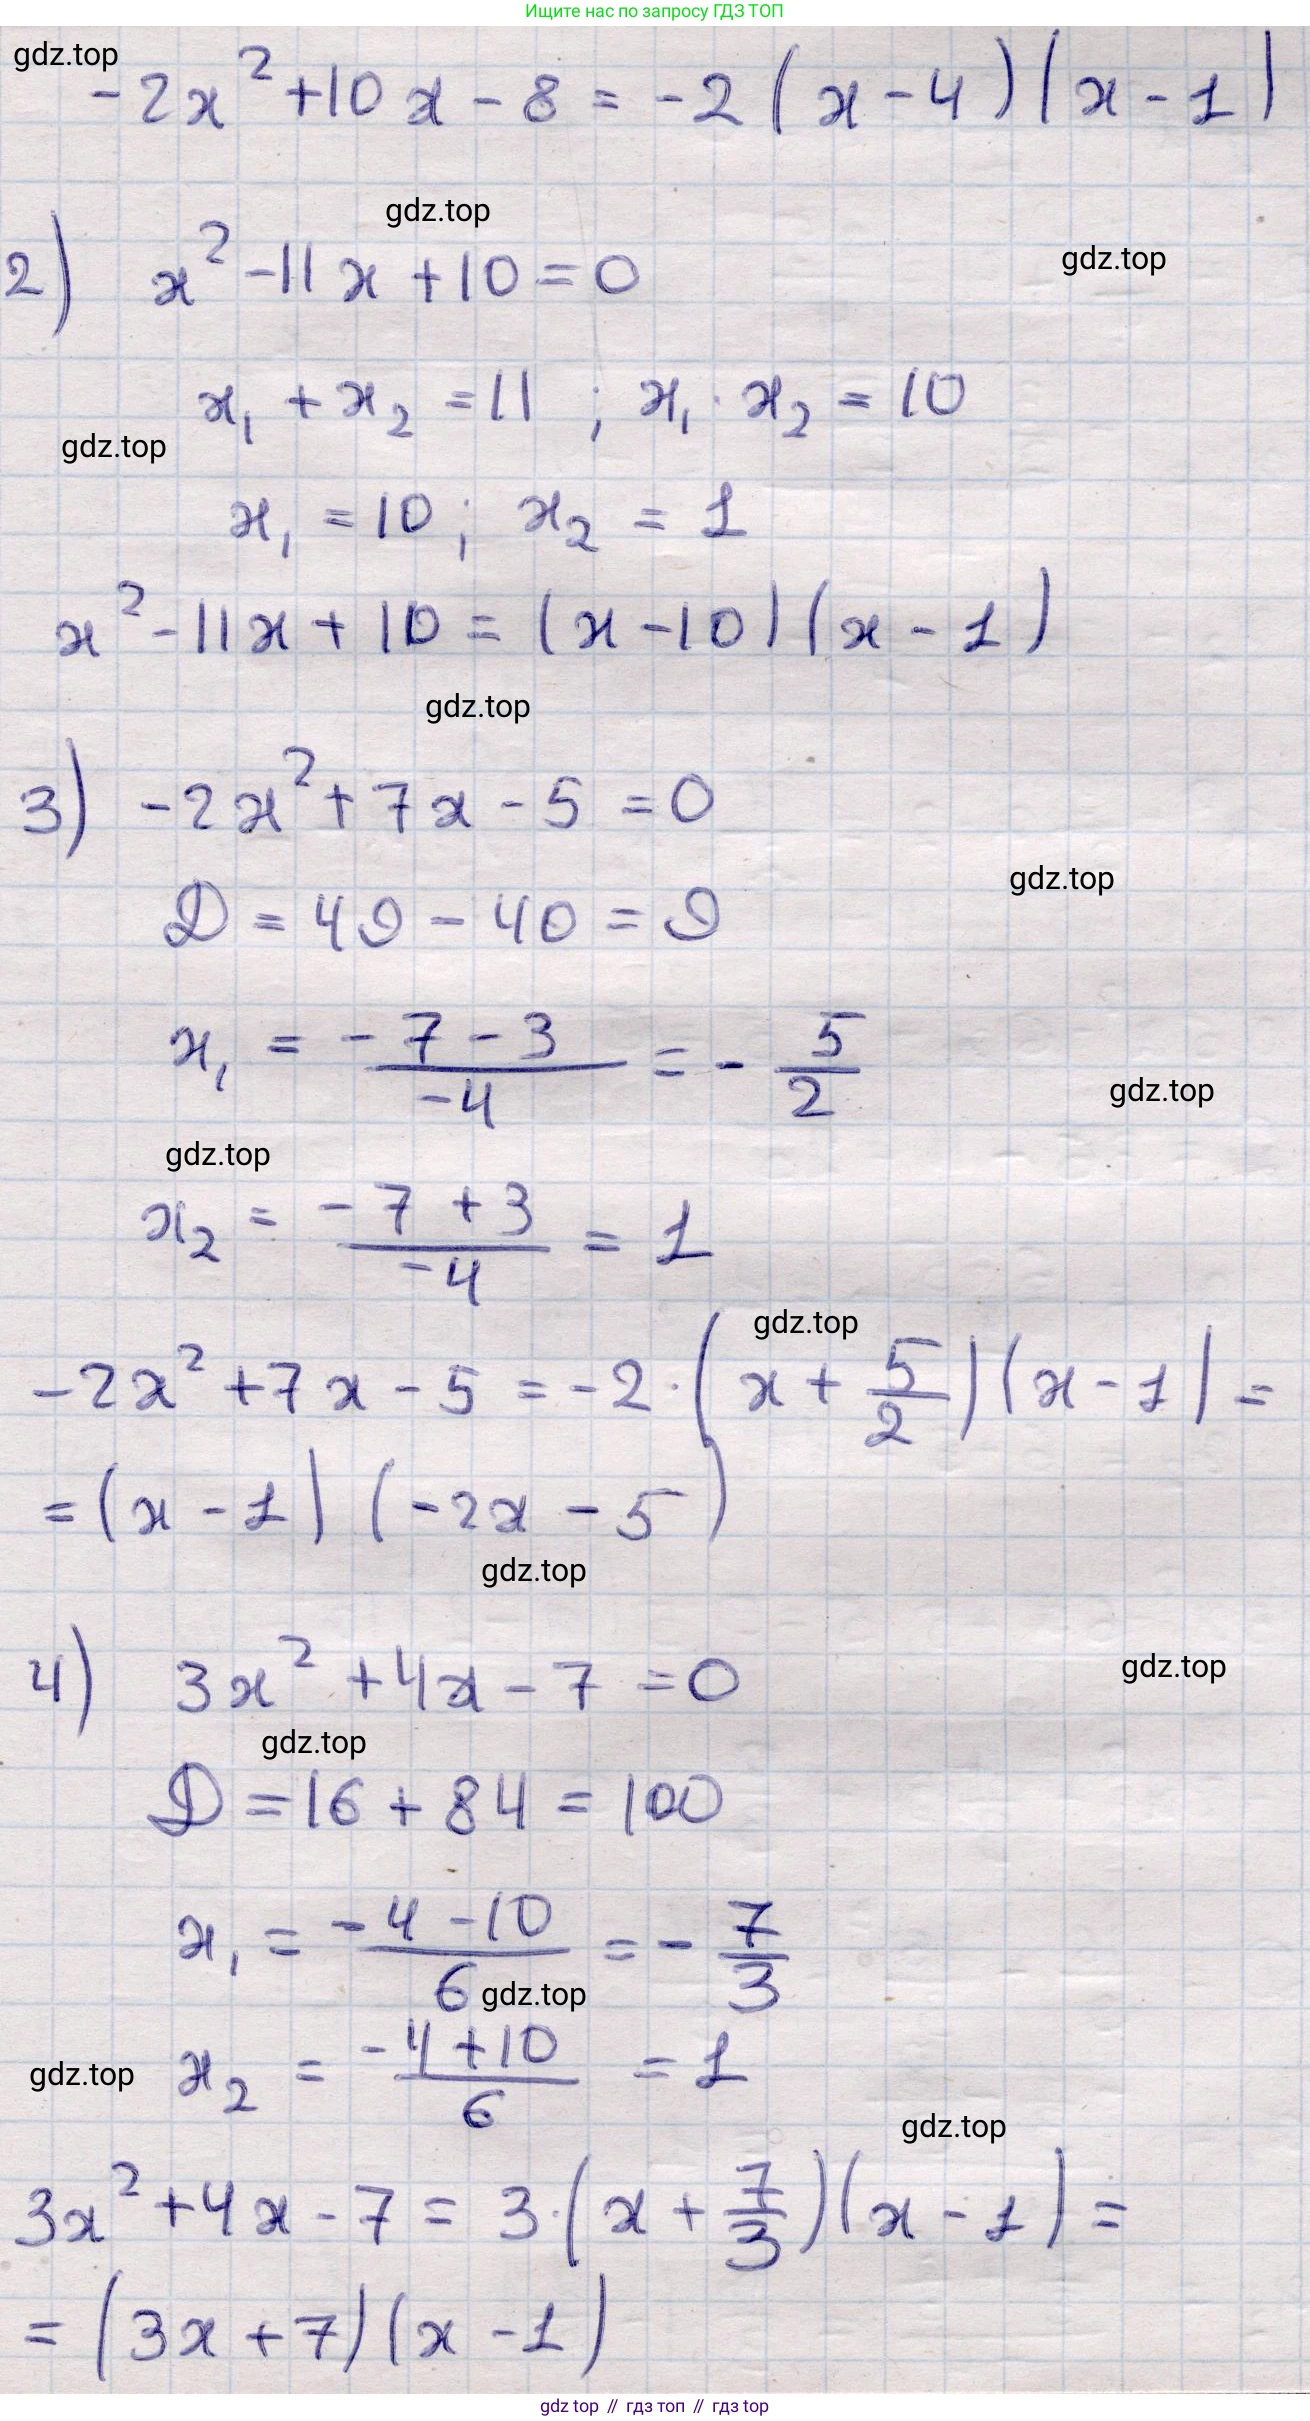 Ищите нас по запросу ГДЗ ТОП
gdz.top
-2x² + 10x - 8 = -2(x - 4)(x - 1)
gdz.top
gdz.top
2) x² - 11x + 10 = 0
x₁ + x₂ = 11 ; x₁ · x₂ = 10
gdz.top
x₁ = 10 ; x₂ = 1
x² - 11x + 10 = (x - 10)(x - 1)
gdz.top
3) -2x² + 7x - 5 = 0
gdz.top
D = 49 - 40 = 9
x₁ = (-7 - 3)/(-4) = - 5/2
gdz.top
gdz.top
x₂ = (-7 + 3)/(-4) = 1
gdz.top
-2x² + 7x - 5 = -2 · (x + 5/2)(x - 1) =
= (x - 1)(-2x - 5)
gdz.top
4) 3x² + 4x - 7 = 0
gdz.top
gdz.top
D = 16 + 84 = 100
x₁ = (-4 - 10)/6 = - 7/3
gdz.top
x₂ = (-4 + 10)/6 = 1
gdz.top
gdz.top
3x² + 4x - 7 = 3 · (x + 7/3)(x - 1) =
= (3x + 7)(x - 1)
gdz top // гдз топ // гдз top